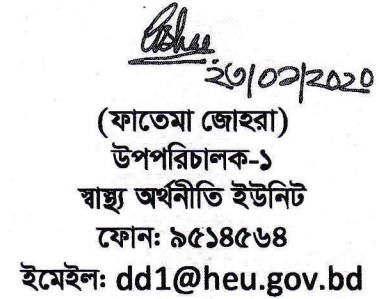 ২৩/০৯/২০২০
(ফাতেমা জোহরা)
উপপরিচালক-১
স্বাস্থ্য অর্থনীতি ইউনিট
ফোন: ৯৫১৪৫৬৪
ইমেইল: dd1@heu.gov.bd